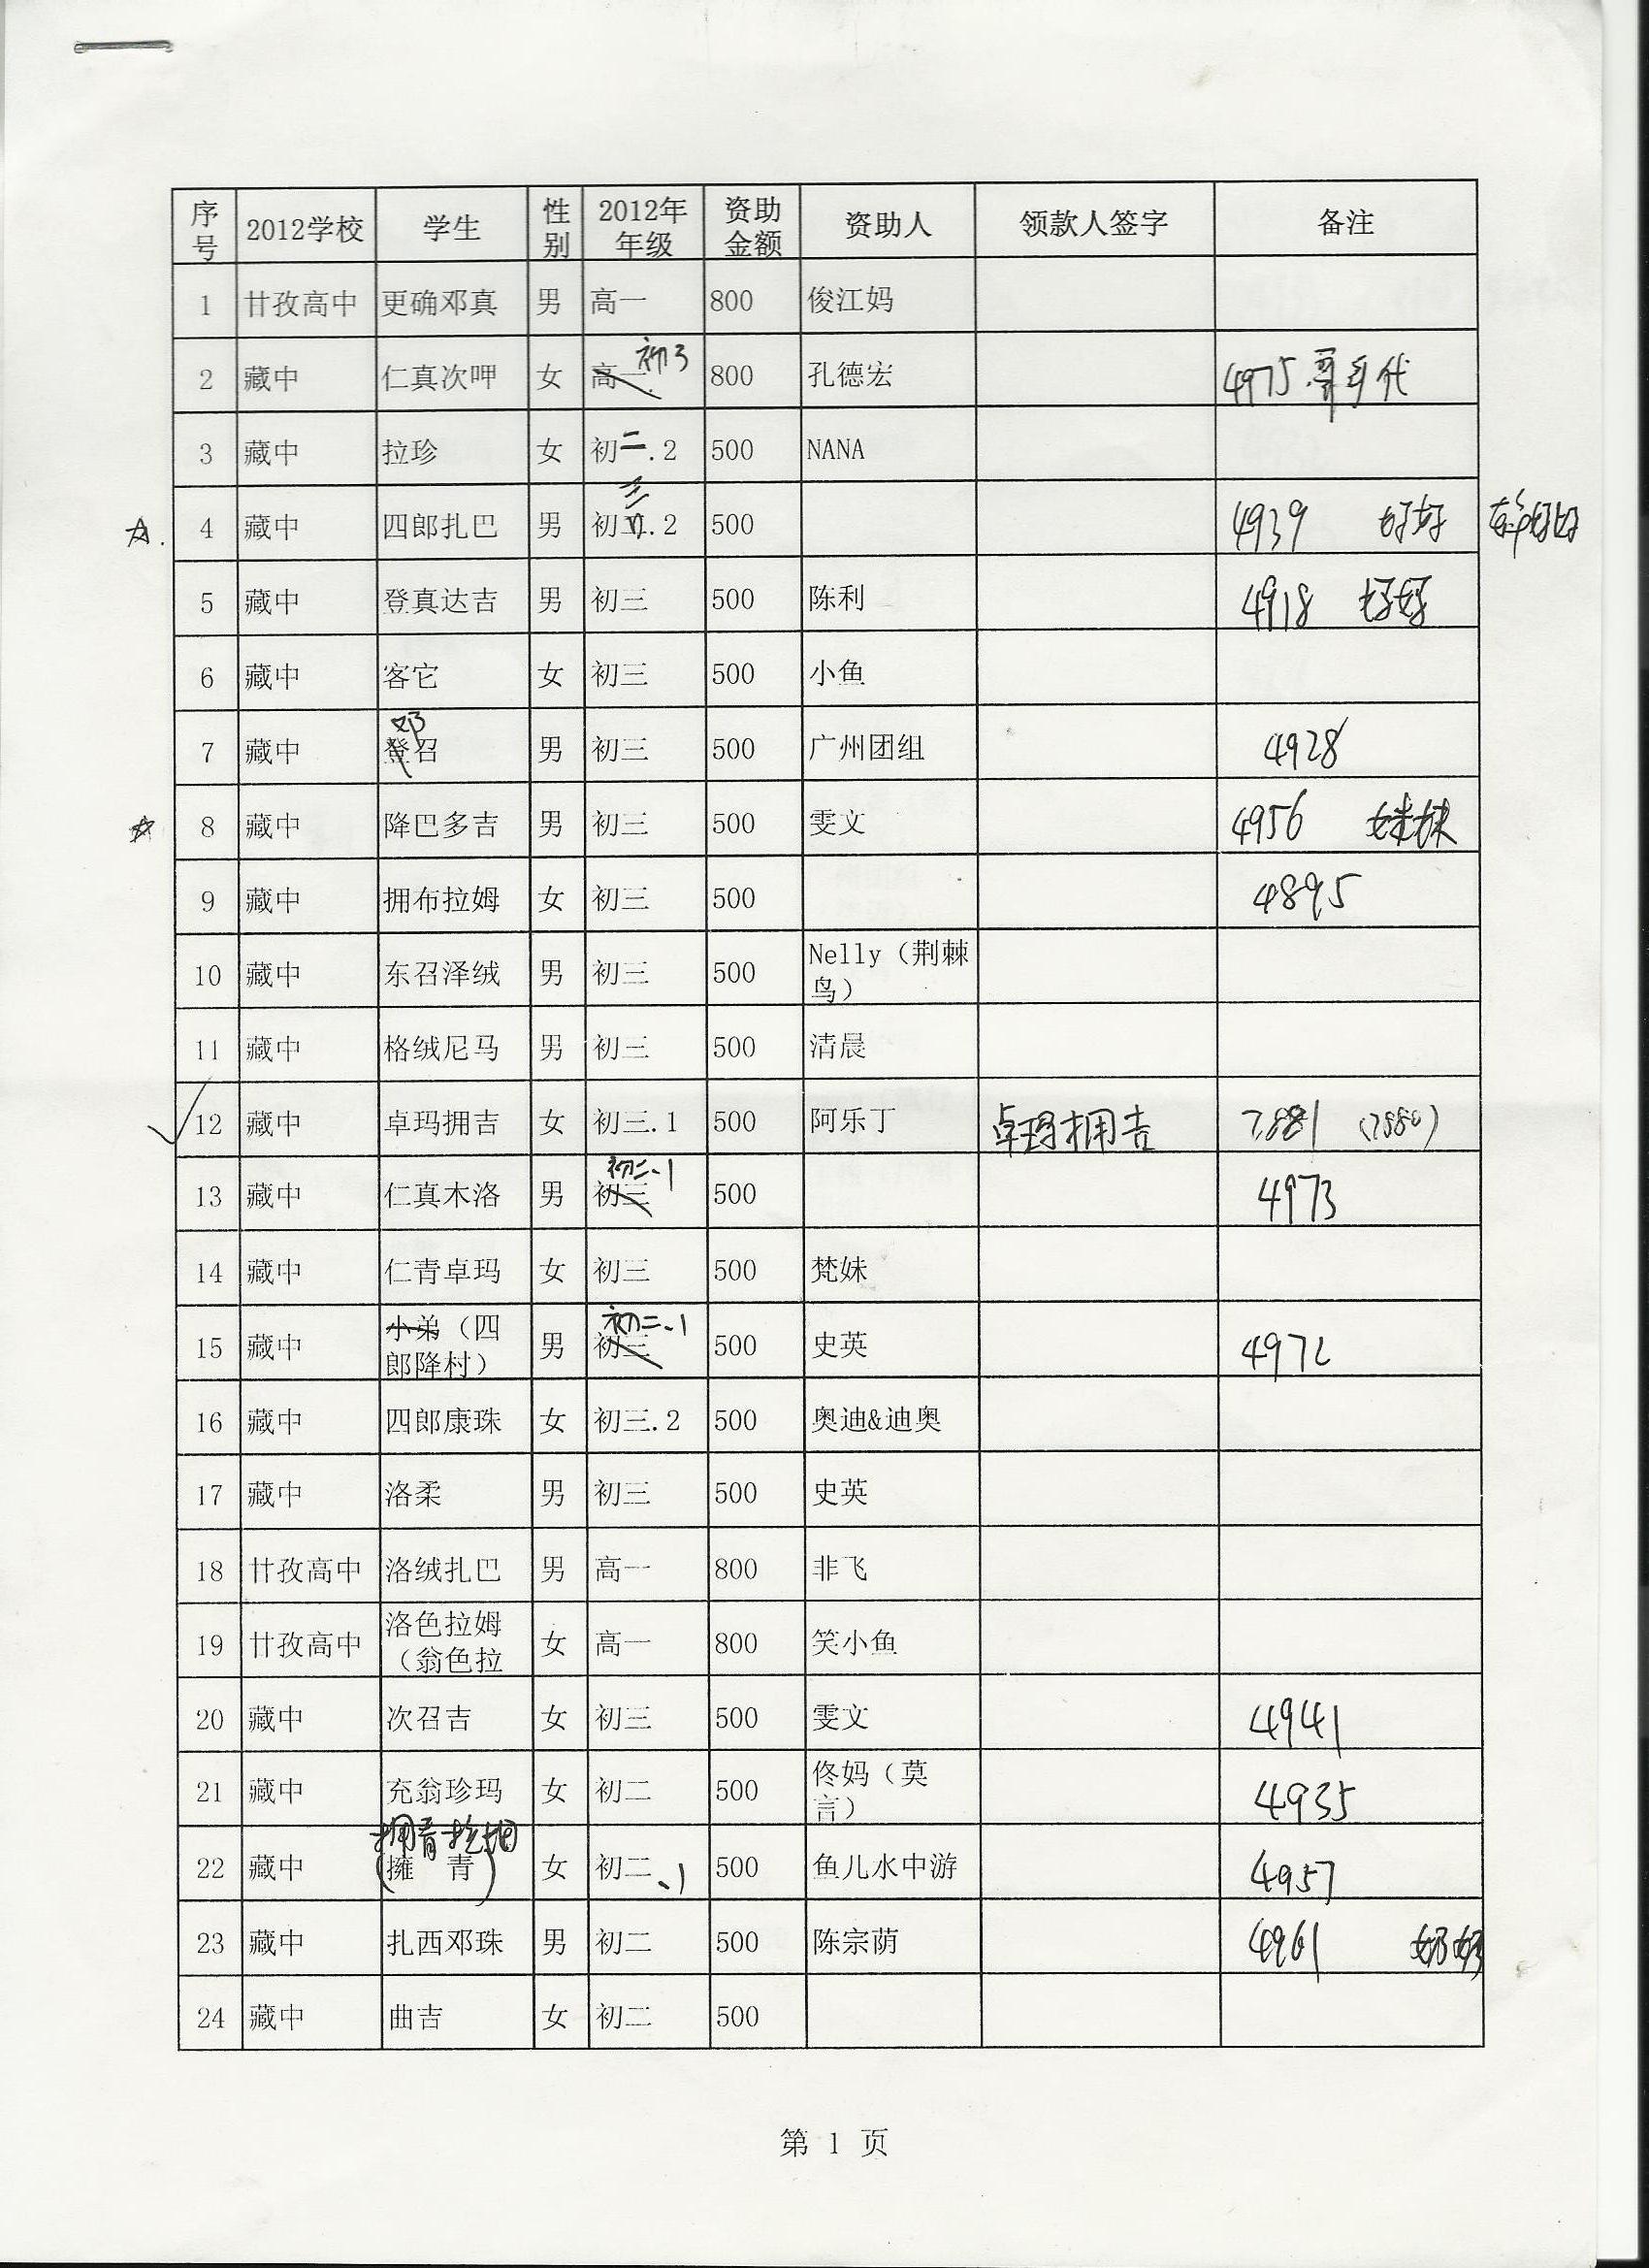 序号 2012学校 学生 性别 2012年年级 资助金额 资助人 领款人签字 备注
1 甘孜高中 更确邓真 男 高一 800 俊江妈
2 藏中 仁真次呷 女 高一 初3 800 孔德宏 4975 哥哥代
3 藏中 拉珍 女 初二.2 500 NANA
4 藏中 四郎扎巴 男 初三.2 500 4939
5 藏中 登真达吉 男 初三 500 陈利 4918
6 藏中 客它 女 初三 500 小鱼
7 藏中 邓 登召 男 初三 500 广州团组 4928
8 藏中 降巴多吉 男 初三 500 雯文 4956 妹妹
9 藏中 拥布拉姆 女 初三 500 4895
10 藏中 东召泽绒 男 初三 500 Nelly（荆棘鸟）
11 藏中 格绒尼马 男 初三 500 清晨
12 藏中 卓玛拥吉 女 初三.1 500 阿乐丁 卓玛拥吉 7881 (7880)
13 藏中 仁真木洛 男 初三 初二、1 500 4973
14 藏中 仁青卓玛 女 初三 500 梵妹
15 藏中 小弟（四郎降村） 男 初三 初二、1 500 史英 4972
16 藏中 四郎康珠 女 初三.2 500 奥迪&迪奥
17 藏中 洛柔 男 初三 500 史英
18 甘孜高中 洛绒扎巴 男 高一 800 非飞
19 甘孜高中 洛色拉姆（翁色拉 女 高一 800 笑小鱼
20 藏中 次召吉 女 初三 500 雯文 4941
21 藏中 充翁珍玛 女 初二 500 佟妈（莫言） 4935
22 藏中 拥青拉姆 (擁 青) 女 初二、1 500 鱼儿水中游 4957
23 藏中 扎西邓珠 男 初二 500 陈宗荫 4961
24 藏中 曲吉 女 初二 500
第 1 页